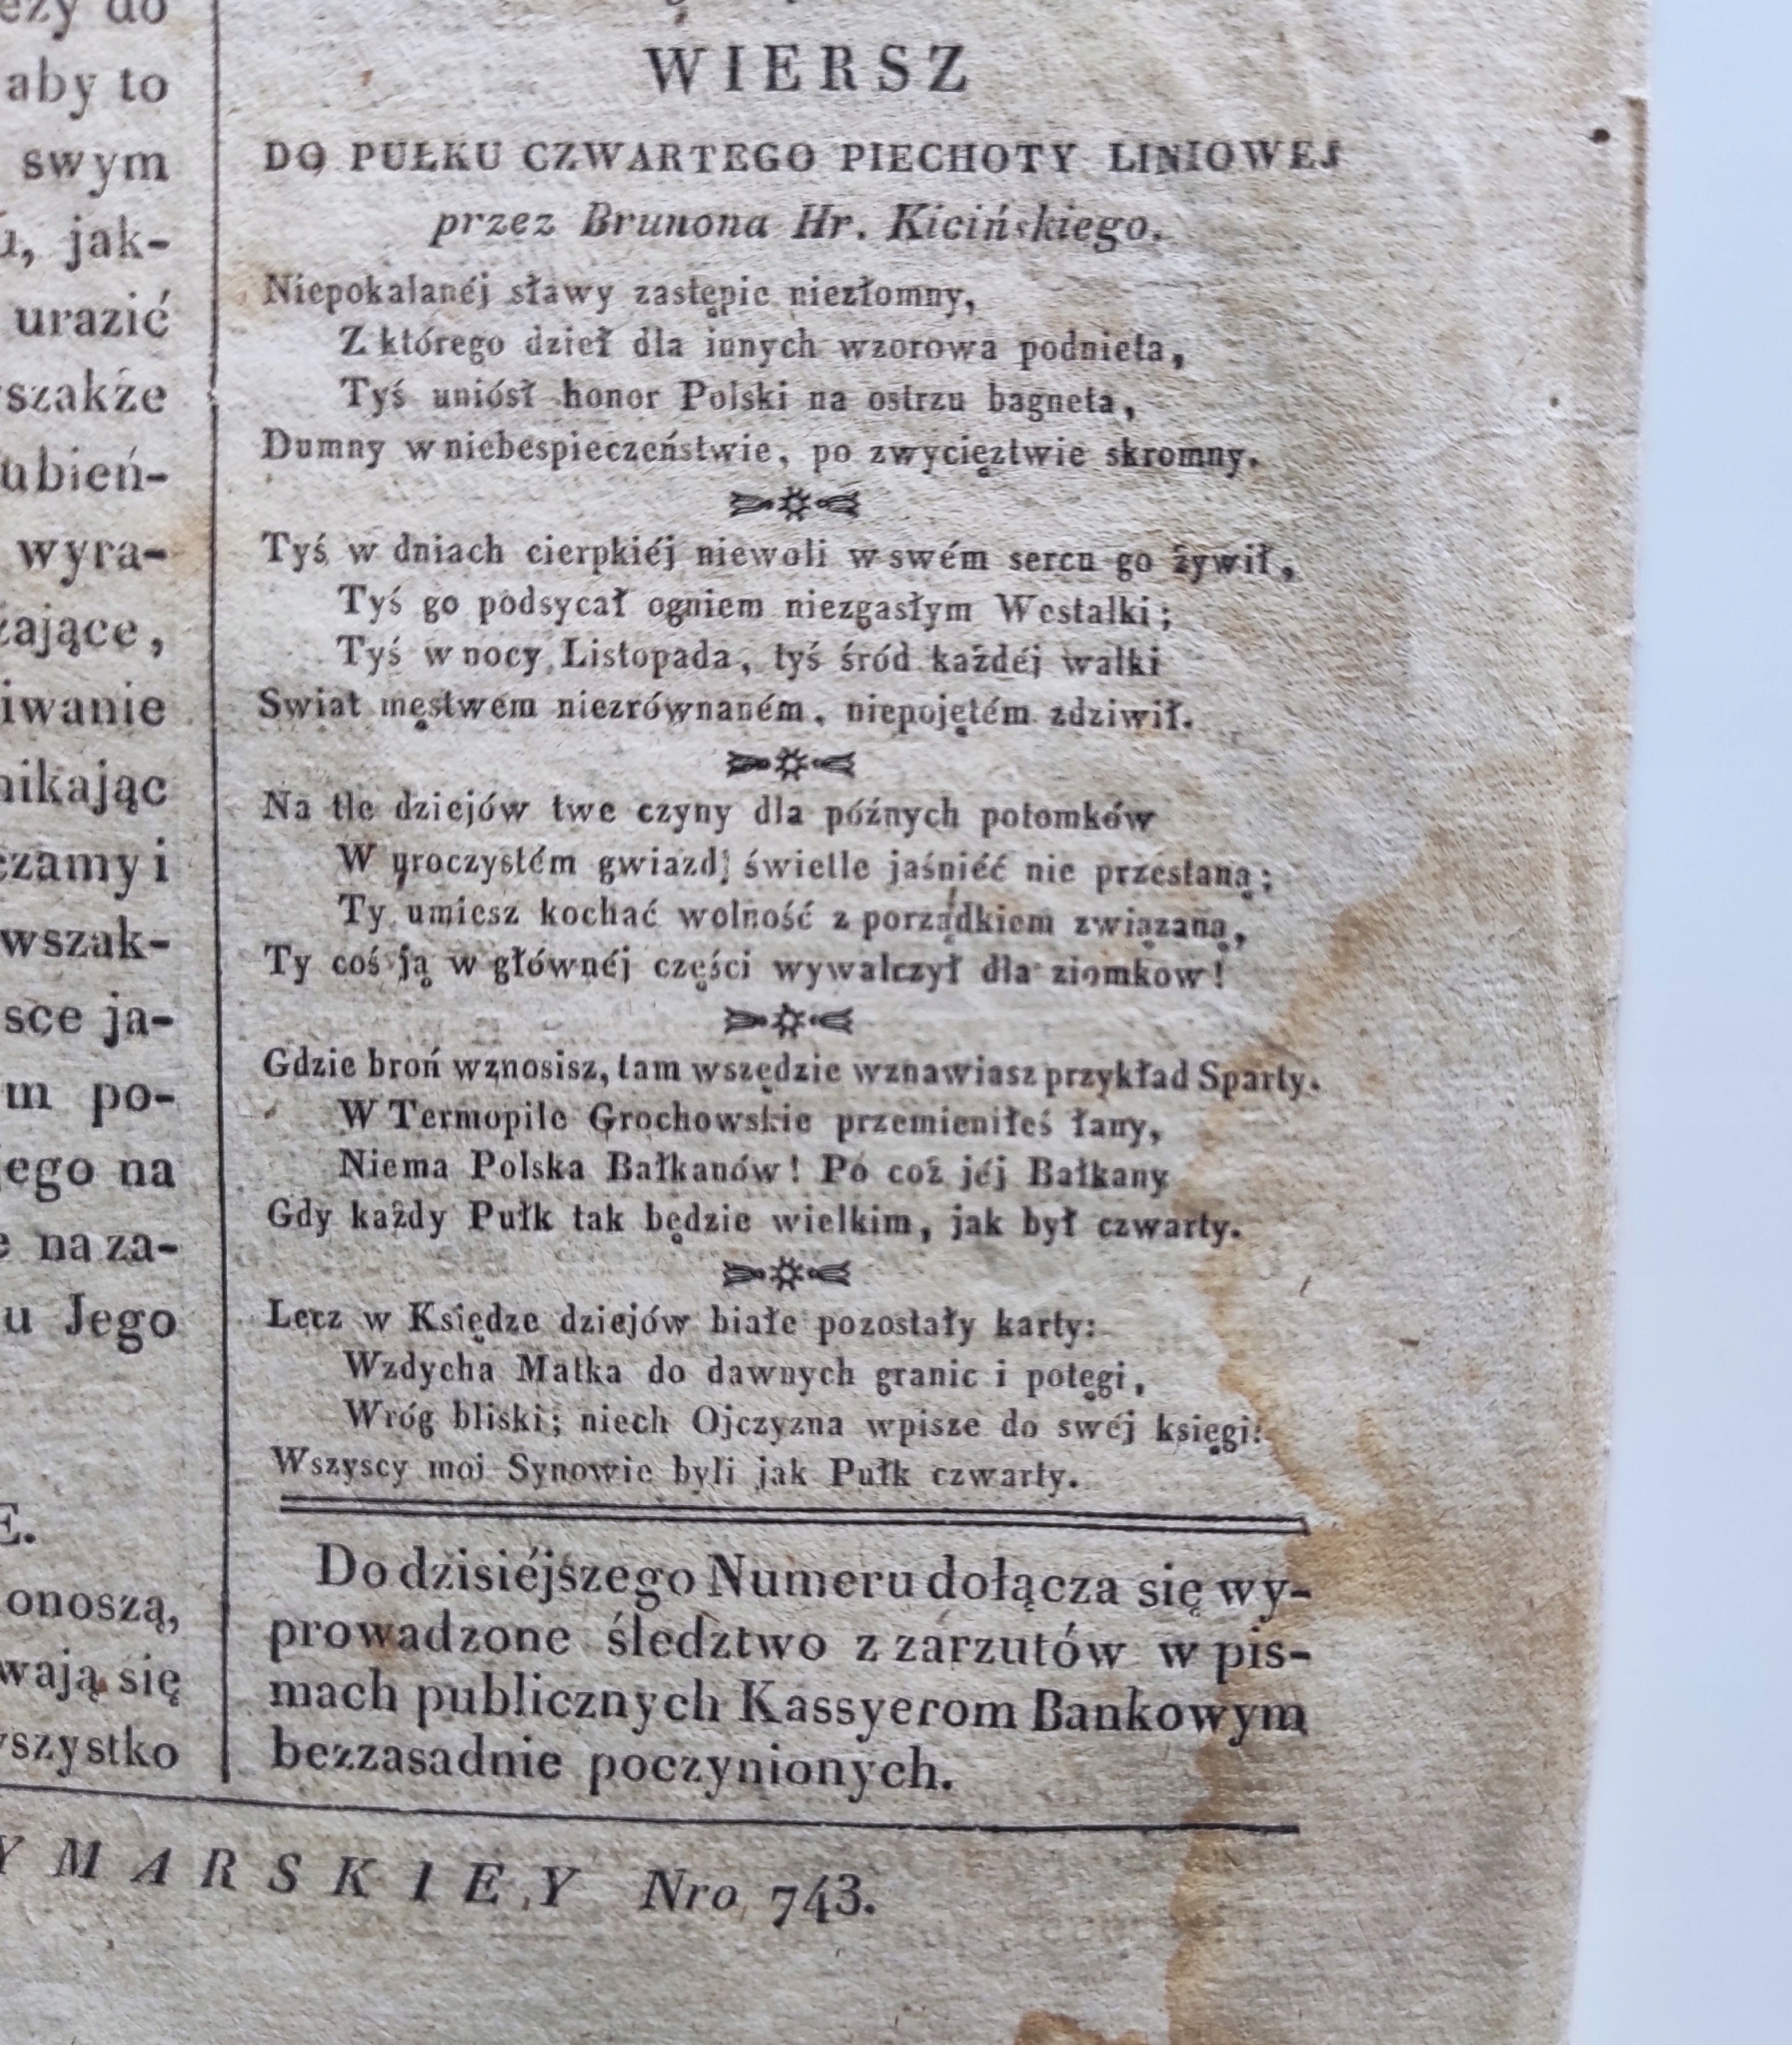 eży do
aby to
swym
ú, jak-
urazić
szakże
ubień-
wyra-
żające,
iwanie
nikając
czamy i
wszak-
sce ja-
m po-
jego na
e na za-
u Jego
E.
onoszą,
wają się
wszystko
WIERSZ
DO PUŁKU CZWARTEGO PIECHOTY LINIOWEJ
przez Brunona Hr. Kicińskiego.
Niepokalanéj sławy zastępie niezłomny,
Z którego dzieł dla innych wzorowa podnieta,
Tyś uniósł honor Polski na ostrzu bagneta,
Dumny w niebespieczeństwie, po zwycięztwie skromny.
Tyś w dniach cierpkiéj niewoli w swém sercu go żywił,
Tyś go podsycał ogniem niezgasłym Westalki;
Tyś w nocy Listopada, tyś śród każdéj walki
Swiat męstwem niezrównaném, niepojętém zdziwił.
Na tle dziejów twe czyny dla późnych potomków
W uroczystém gwiazd, świetle jaśniéć nie przestaną;
Ty umiesz kochać wolność z porządkiem związaną,
Ty coś ją w głównéj części wywalczył dla ziomkow!
Gdzie broń wznosisz, tam wszędzie wznawiasz przykład Sparty.
W Termopile Grochowskie przemieniłeś łany,
Niema Polska Bałkanów! Po coż jéj Bałkany
Gdy każdy Pułk tak będzie wielkim, jak był czwarty.
Lecz w Księdze dziejów białe pozostały karty:
Wzdycha Matka do dawnych granic i potęgi,
Wróg bliski; niech Ojczyzna wpisze do swéj księgi:
Wszyscy moi Synowie byli jak Pułk czwarty.
Do dzisiéjszego Numeru dołącza się wy-
prowadzone śledztwo z zarzutów w pis-
mach publicznych Kassyerom Bankowym
bezzasadnie poczynionych.
YMARSKIEY Nro 743.